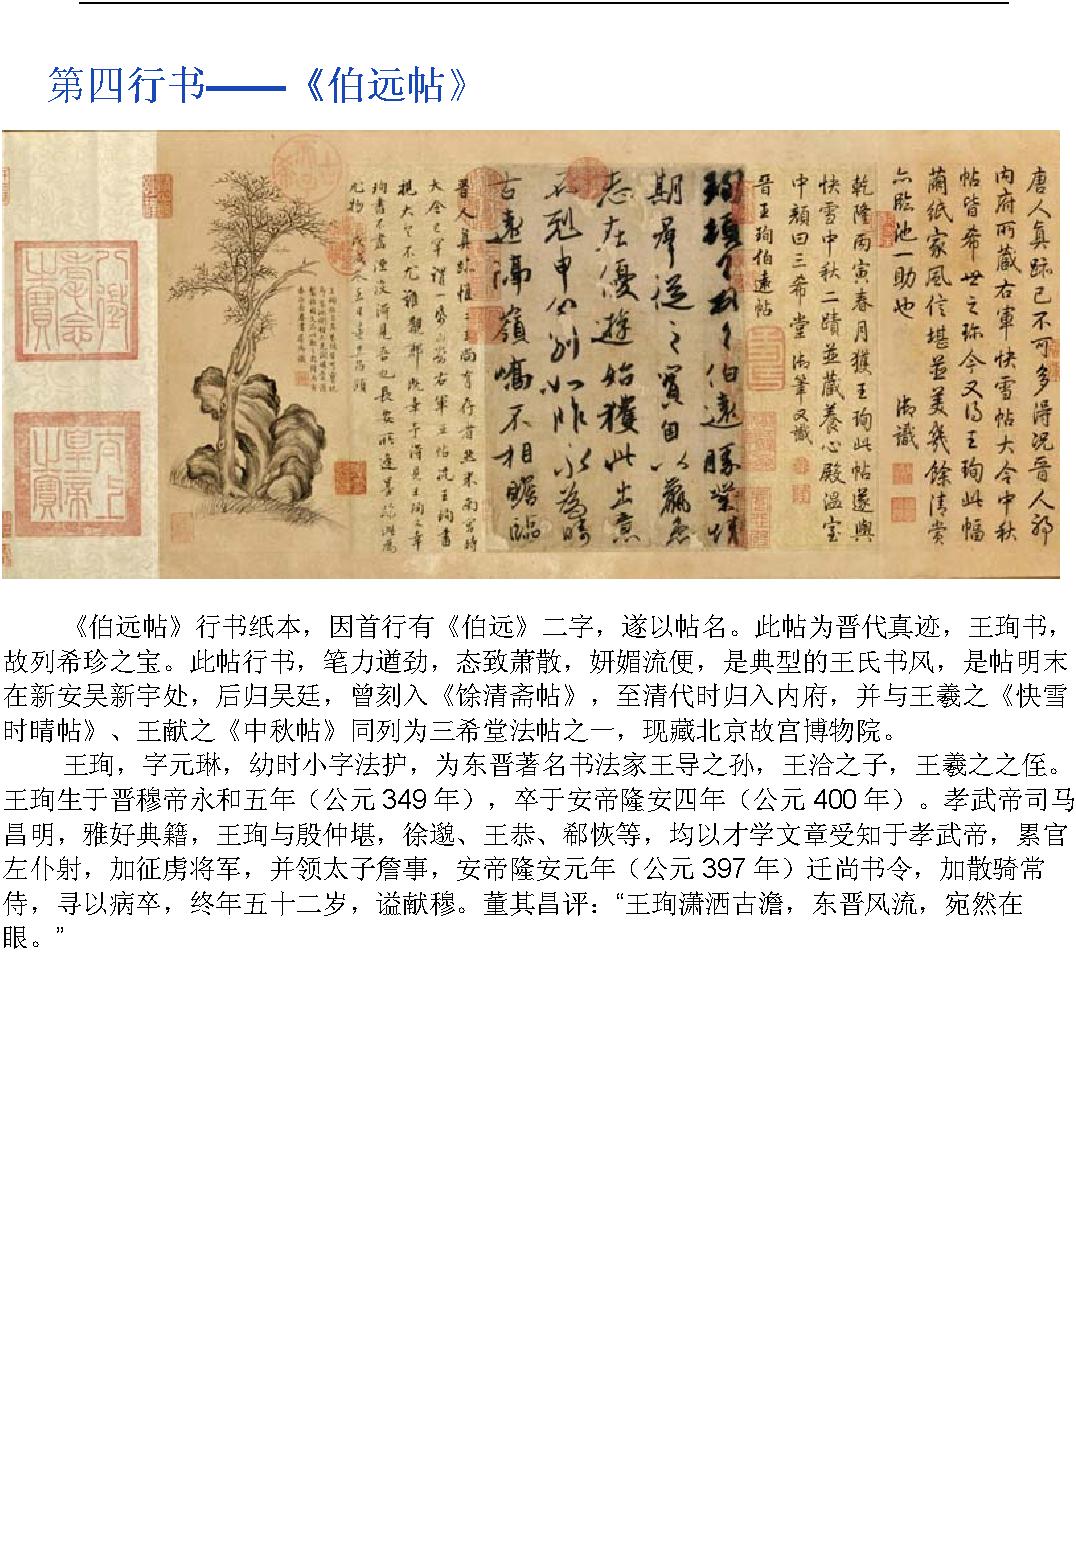 第四行书——《伯远帖》
唐人真跡已不可多得況晉人耶
內府所藏右軍快雪帖大令中秋
帖皆希世之珍今又得王珣此幅
繭紙家風信堪並美幾餘清賞
亦臨池一助也 御識
乾隆丙寅春月獲王珣此帖遂與
快雪中秋二蹟並藏養心殿溫室
中顏曰三希堂御筆又識
晉王珣伯遠帖
珣頓首頓首伯遠勝業情
期群從之寶自以羸患
志在優遊始獲此出意
不剋申分別如昨永為疇
古遠隔嶺嶠不相瞻臨
《伯远帖》行书纸本，因首行有《伯远》二字，遂以帖名。此帖为晋代真迹，王珣书，
故列希珍之宝。此帖行书，笔力遒劲，态致萧散，妍媚流便，是典型的王氏书风，是帖明末
在新安吴新宇处，后归吴廷，曾刻入《馀清斋帖》，至清代时归入内府，并与王羲之《快雪
时晴帖》、王献之《中秋帖》同列为三希堂法帖之一，现藏北京故宫博物院。
王珣，字元琳，幼时小字法护，为东晋著名书法家王导之孙，王洽之子，王羲之之侄。
王珣生于晋穆帝永和五年（公元 349 年），卒于安帝隆安四年（公元 400 年）。孝武帝司马
昌明，雅好典籍，王珣与殷仲堪，徐邈、王恭、郗恢等，均以才学文章受知于孝武帝，累官
左仆射，加征虏将军，并领太子詹事，安帝隆安元年（公元 397 年）迁尚书令，加散骑常
侍，寻以病卒，终年五十二岁，谥献穆。董其昌评：“王珣潇洒古澹，东晋风流，宛然在
眼。”